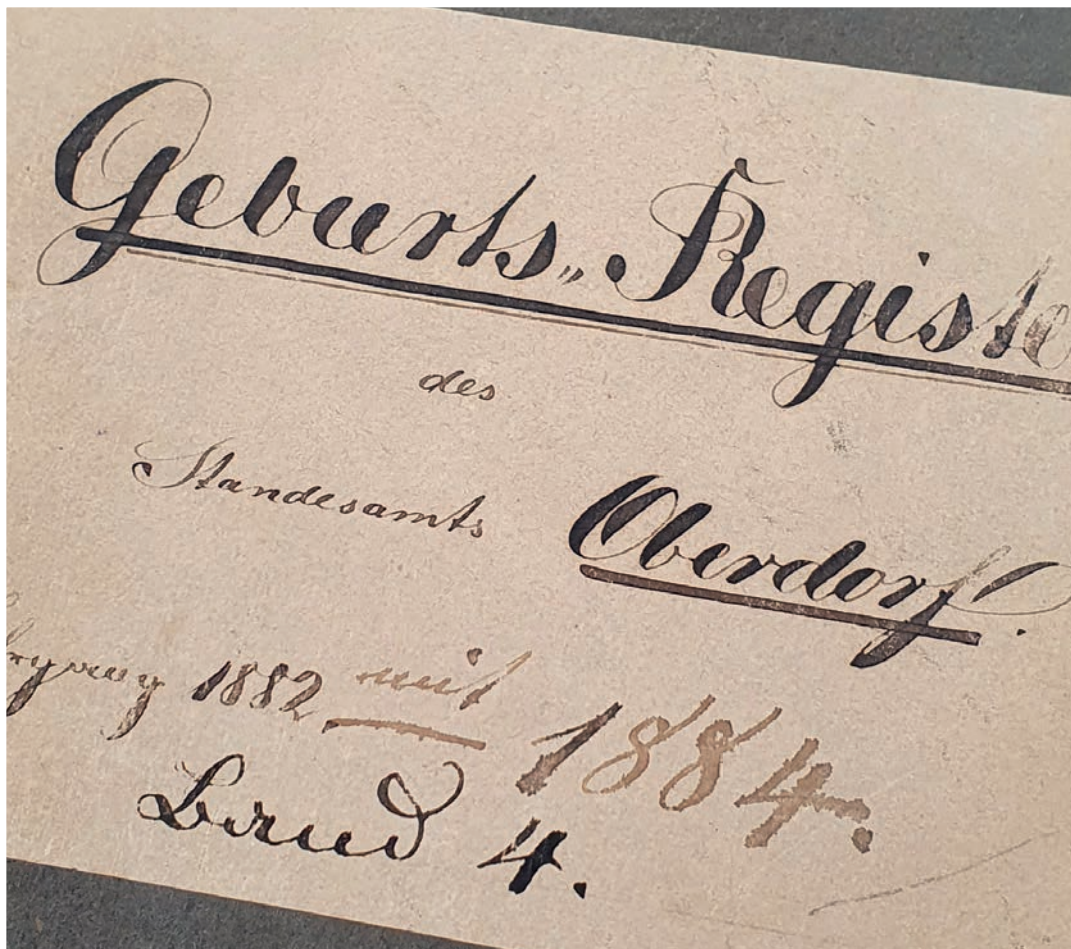 Geburts-Registe
des
Standesamts Oberdorf.
hrgang 1882 mit 1884.
Band 4.